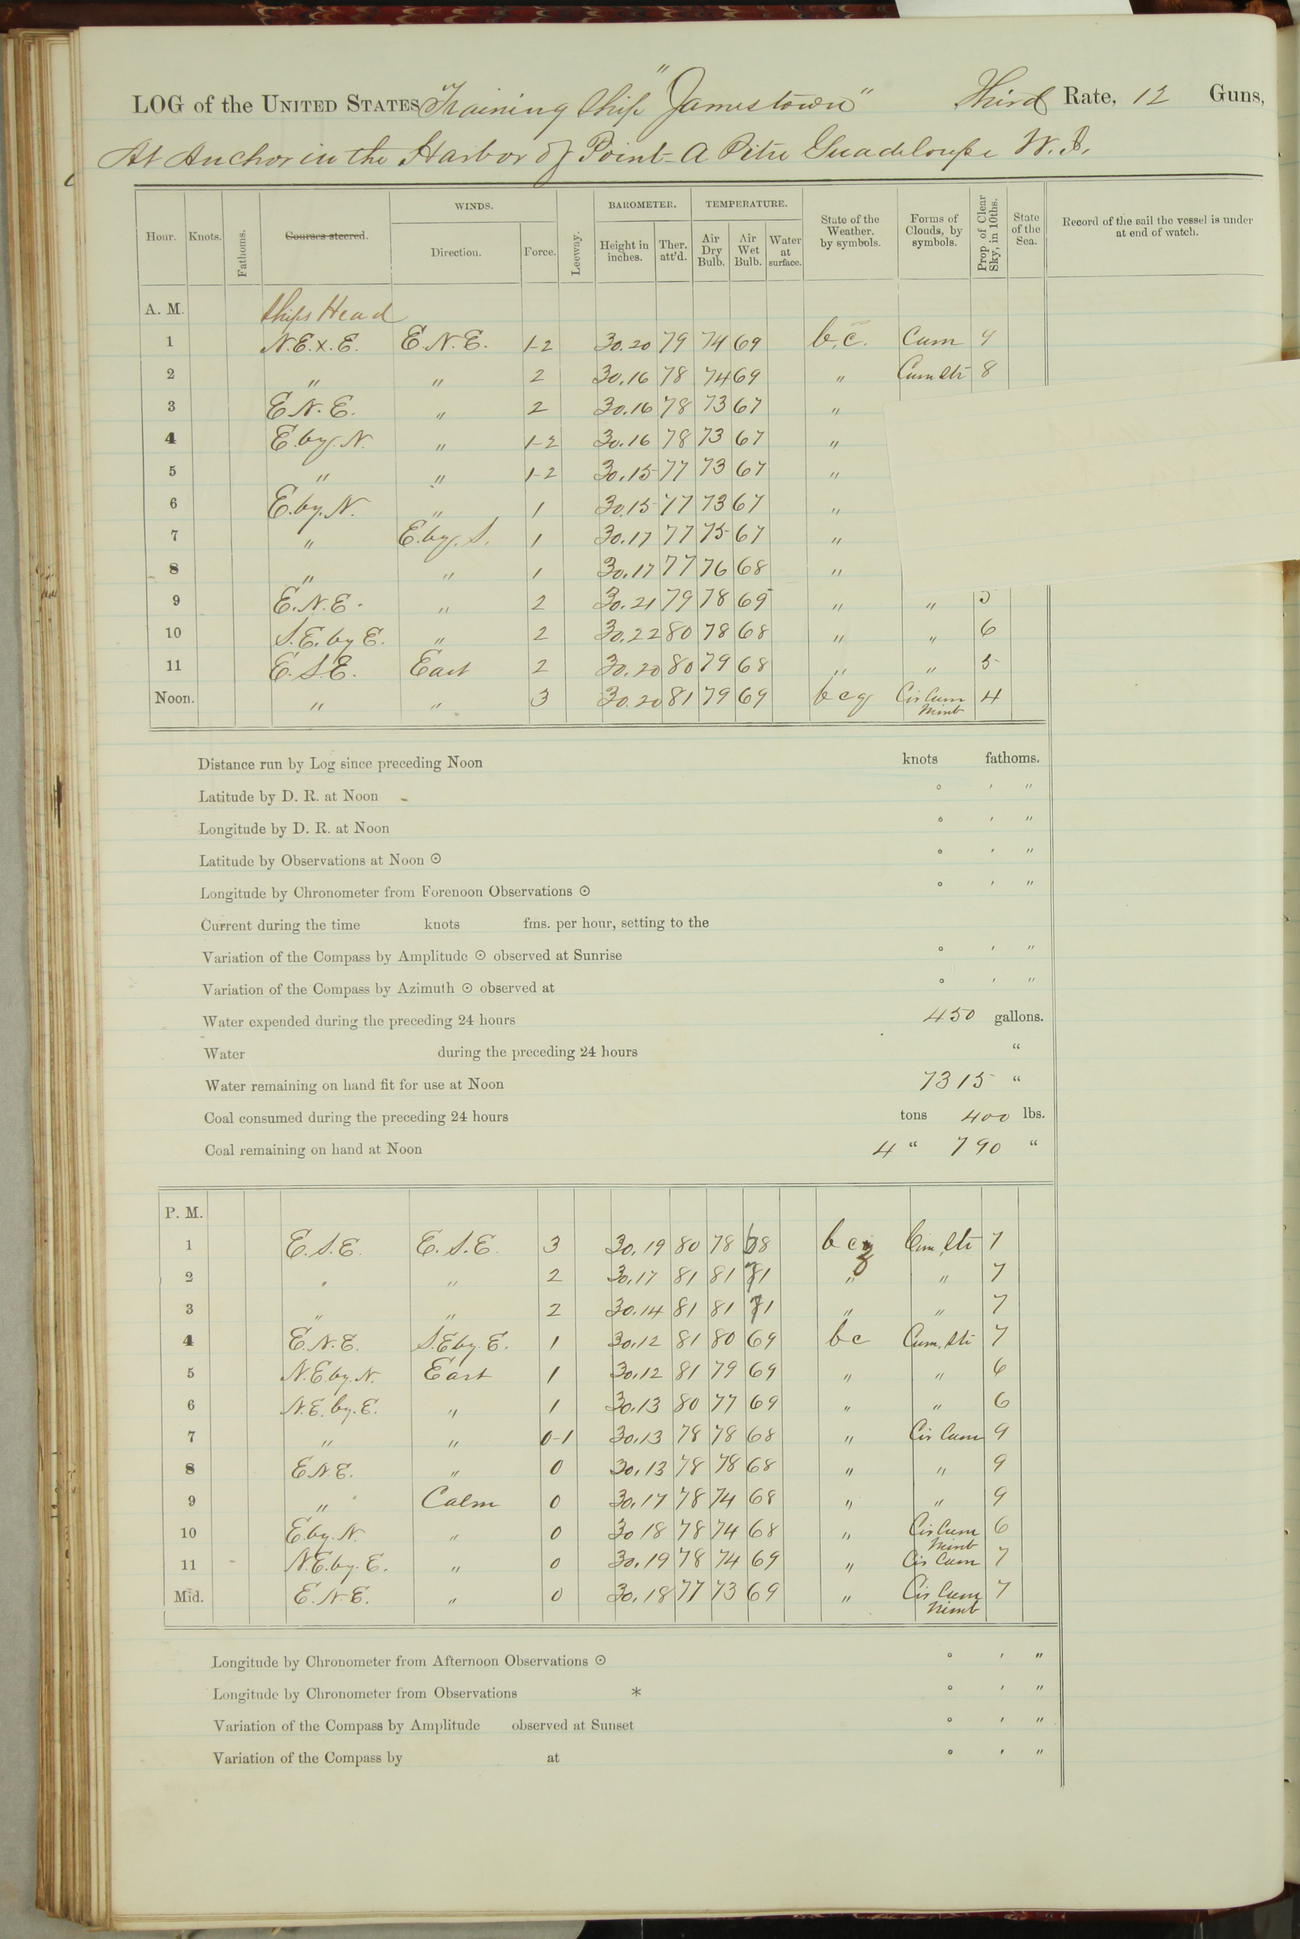 LOG of the UNITED STATES Training Ship "Jamestown" Third Rate, 12 Guns,
At Anchor in the Harbor of Point-A Pitre Guadeloupe W. I.
WINDS. BAROMETER. TEMPERATURE.
Hour. Knots. Fathoms. Courses steered. Direction. Force. Leeway. Height in inches. Ther. att'd. Air Dry Bulb. Air Wet Bulb. Water at surface. State of the Weather. by symbols. Forms of Clouds, by symbols. Prop. of Clear Sky, in 10ths. State of the Sea. Record of the sail the vessel is under at end of watch.
A. M. Ships Head
1 N.E.x.E. E.N.E. 1-2 30.20 79 74 69 b.c. Cum 9
2 " " 2 30.16 78 74 69 " Cum Str 8
3 E.N.E. " 2 30.16 78 73 67 "
4 E.by.N. " 1-2 30.16 78 73 67 "
5 " " 1-2 30.15 77 73 67 "
6 E.by.N. " 1 30.15 77 73 67 "
7 " E.by.S. 1 30.17 77 75 67 "
8 " " 1 30.17 77 76 68 "
9 E.N.E. " 2 30.21 79 78 69 " " 5
10 S.E.by E. " 2 30.22 80 78 68 " " 6
11 E.S.E. East 2 30.20 80 79 68 " " 5
Noon. " " 3 30.20 81 79 69 b c q Cir Cum Nimb 4
Distance run by Log since preceding Noon knots fathoms.
Latitude by D. R. at Noon ° ′ ″
Longitude by D. R. at Noon ° ′ ″
Latitude by Observations at Noon ☉ ° ′ ″
Longitude by Chronometer from Forenoon Observations ☉ ° ′ ″
Current during the time knots fms. per hour, setting to the
Variation of the Compass by Amplitude ☉ observed at Sunrise ° ′ ″
Variation of the Compass by Azimuth ☉ observed at ° ′ ″
Water expended during the preceding 24 hours 450 gallons.
Water during the preceding 24 hours "
Water remaining on hand fit for use at Noon 7315 "
Coal consumed during the preceding 24 hours tons 400 lbs.
Coal remaining on hand at Noon 4 " 790 "
P. M.
1 E.S.E. E.S.E. 3 30.19 80 78 68 b c q Cum, Str 7
2 " " 2 30.17 81 81 71 " " 7
3 " " 2 30.14 81 81 71 " " 7
4 E.N.E. S.E by E. 1 30.12 81 80 69 b c Cum, Str 7
5 N.E by.N. East 1 30.12 81 79 69 " " 6
6 N.E. by.E. " 1 30.13 80 77 69 " " 6
7 " " 0-1 30.13 78 78 68 " Cir Cum 9
8 E.N.E. " 0 30.13 78 78 68 " " 9
9 " Calm 0 30.17 78 74 68 " " 9
10 E by.N. " 0 30 18 78 74 68 " Cir Cum Nimb 6
11 N.E.by.E. " 0 30.19 78 74 69 " Cir Cum 7
Mid. E.N.E. " 0 30.18 77 73 69 " Cir Cum Nimb 7
Longitude by Chronometer from Afternoon Observations ☉ ° ′ ″
Longitude by Chronometer from Observations * ° ′ ″
Variation of the Compass by Amplitude observed at Sunset ° ′ ″
Variation of the Compass by at ° ′ ″